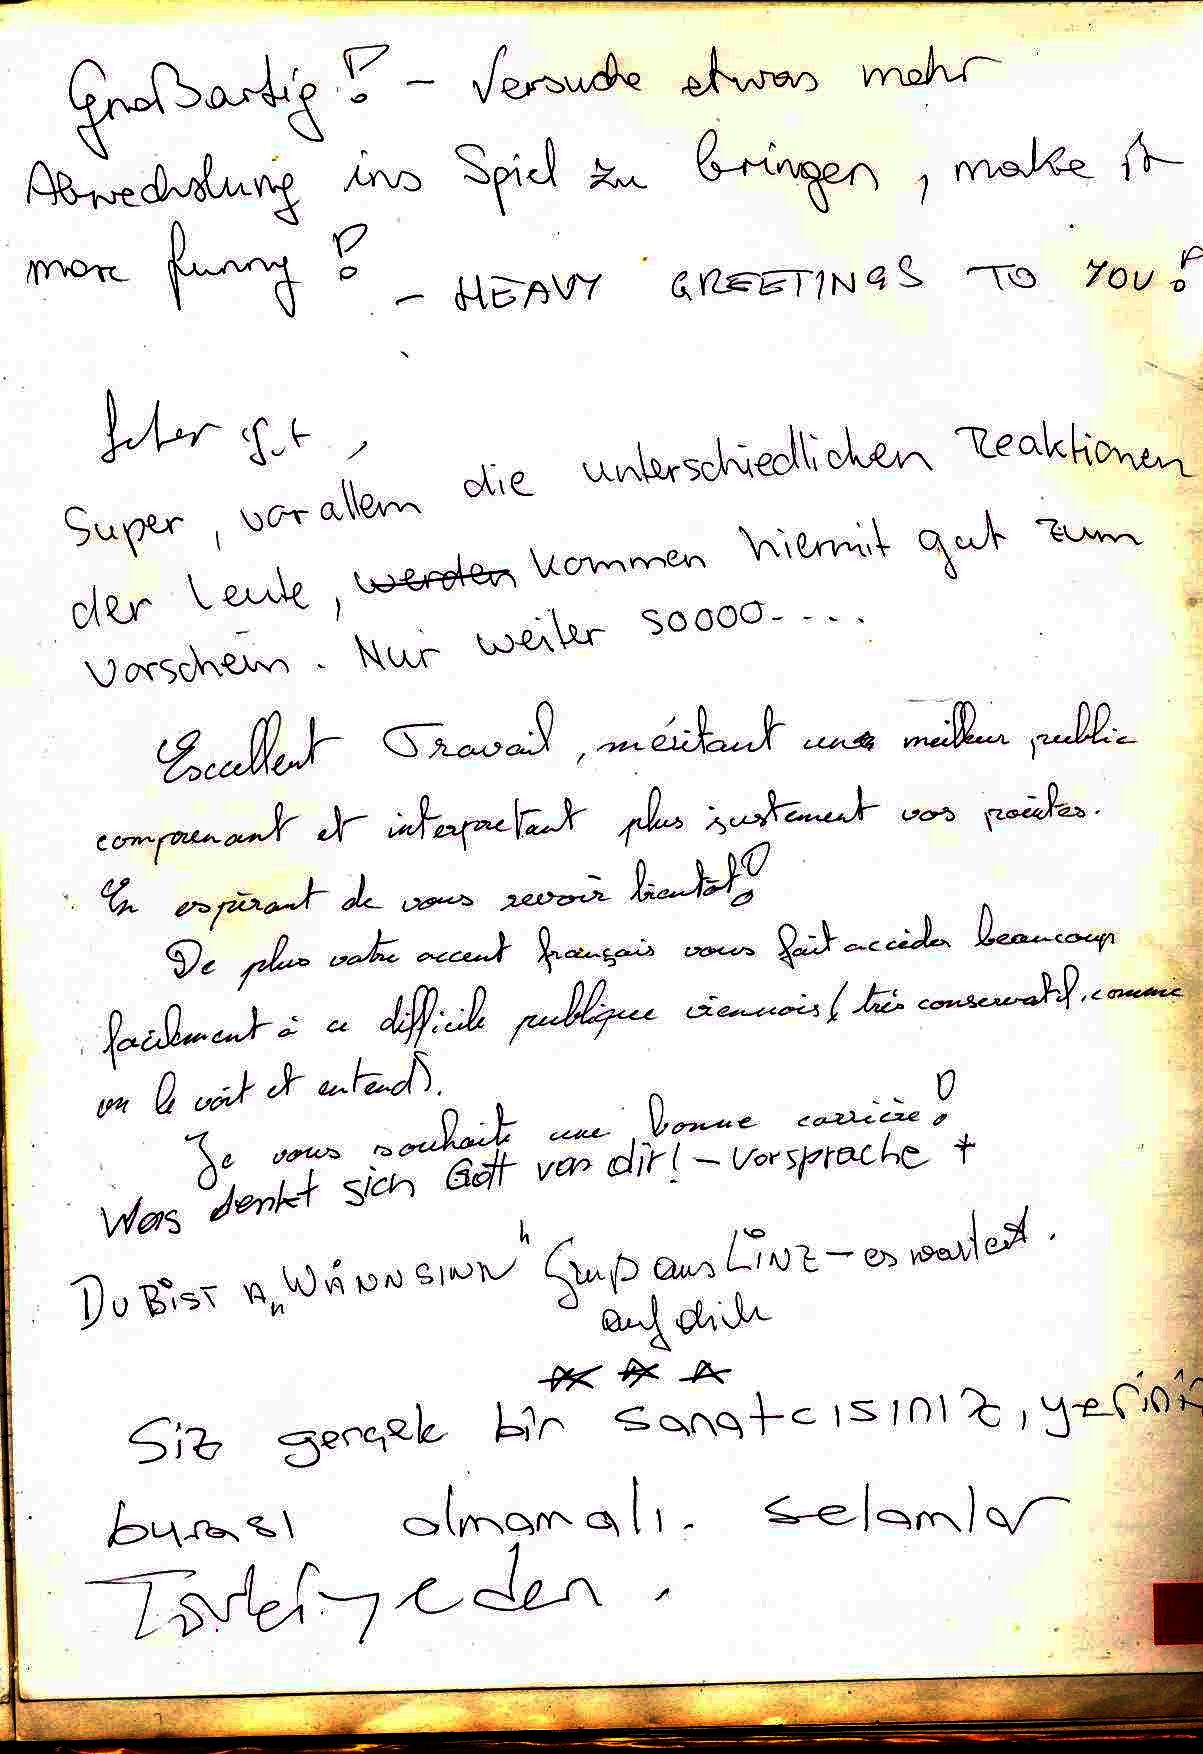 Großartig! – Versuche etwas mehr
Abwechslung ins Spiel zu bringen, make it
more funny!
– HEAVY GREETINGS TO YOU!
gut,
Super, vor allem die unterschiedlichen Reaktionen
der Leute, werden kommen hiermit gut zum
Vorschein. Nur weiter soooo-....
Excellent Travail, méritant un meilleur public
comprenant et interpretant plus justement vos pointes.
En espérant de vous revoir bientôt!
De plus votre accent français vous fait accéder beaucoup
facilement à ce difficile publique viennois (très conservatif, comme
on le voit et entend).
Je vous souhaite une bonne carrière!
Was denkt sich Gott von dir! – Vorsprache +
DU BIST A „WÅNNSINN" Gruß aus LINZ – es wartet.
auf dich
Siz gerçek bir sanatcısınız, yerinin
burası olmamalı. selamlar
Türkiyeden.